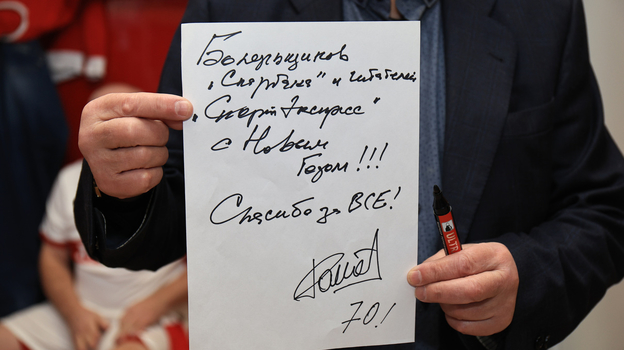 Болельщиков
„Спартака" и читателей
„Спорт Экспресс"
с Новым
Годом!!!
Спасибо за ВСЕ!
70!
ULTR